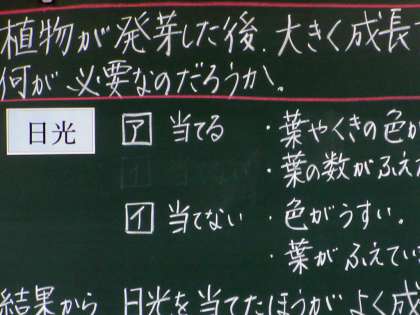 植物が発芽した後、大きく成長
何が必要なのだろうか。
日光 ア 当てる ・葉やくきの色が
・葉の数がふえ
イ 当てない ・色がうすい。
・葉がふえてい
結果から 日光を当てたほうがよく成